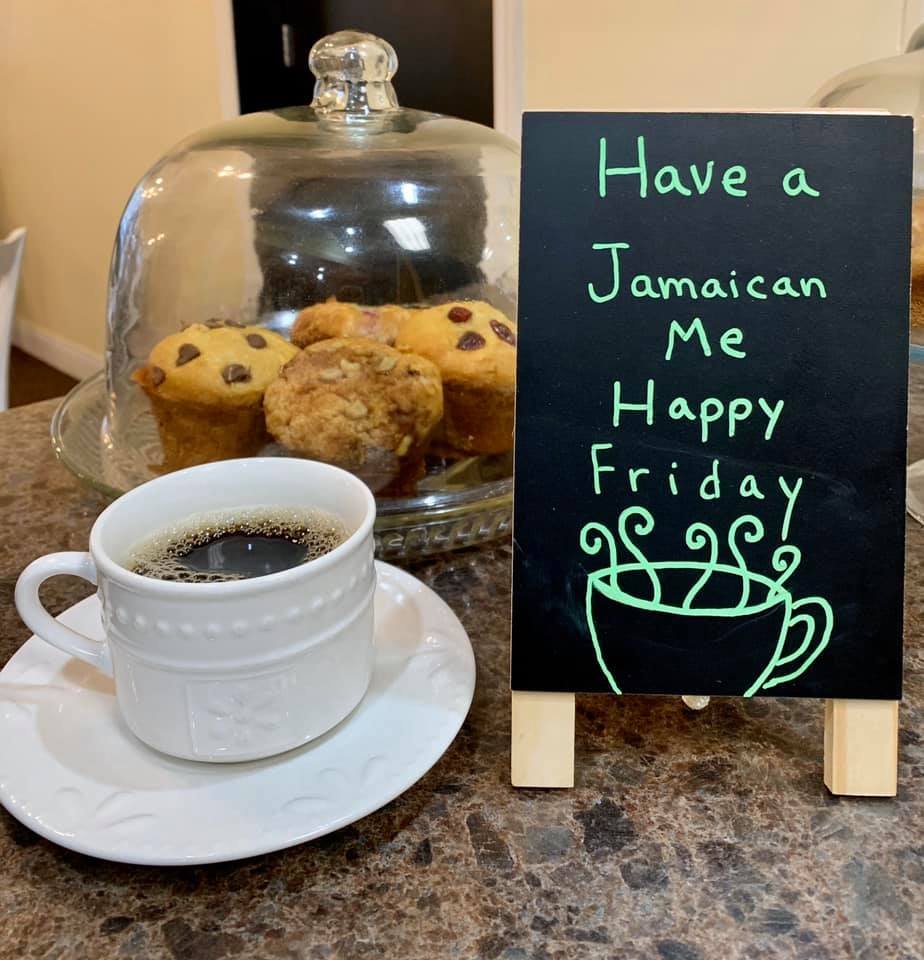 Have a
Jamaican
Me
Happy
Friday